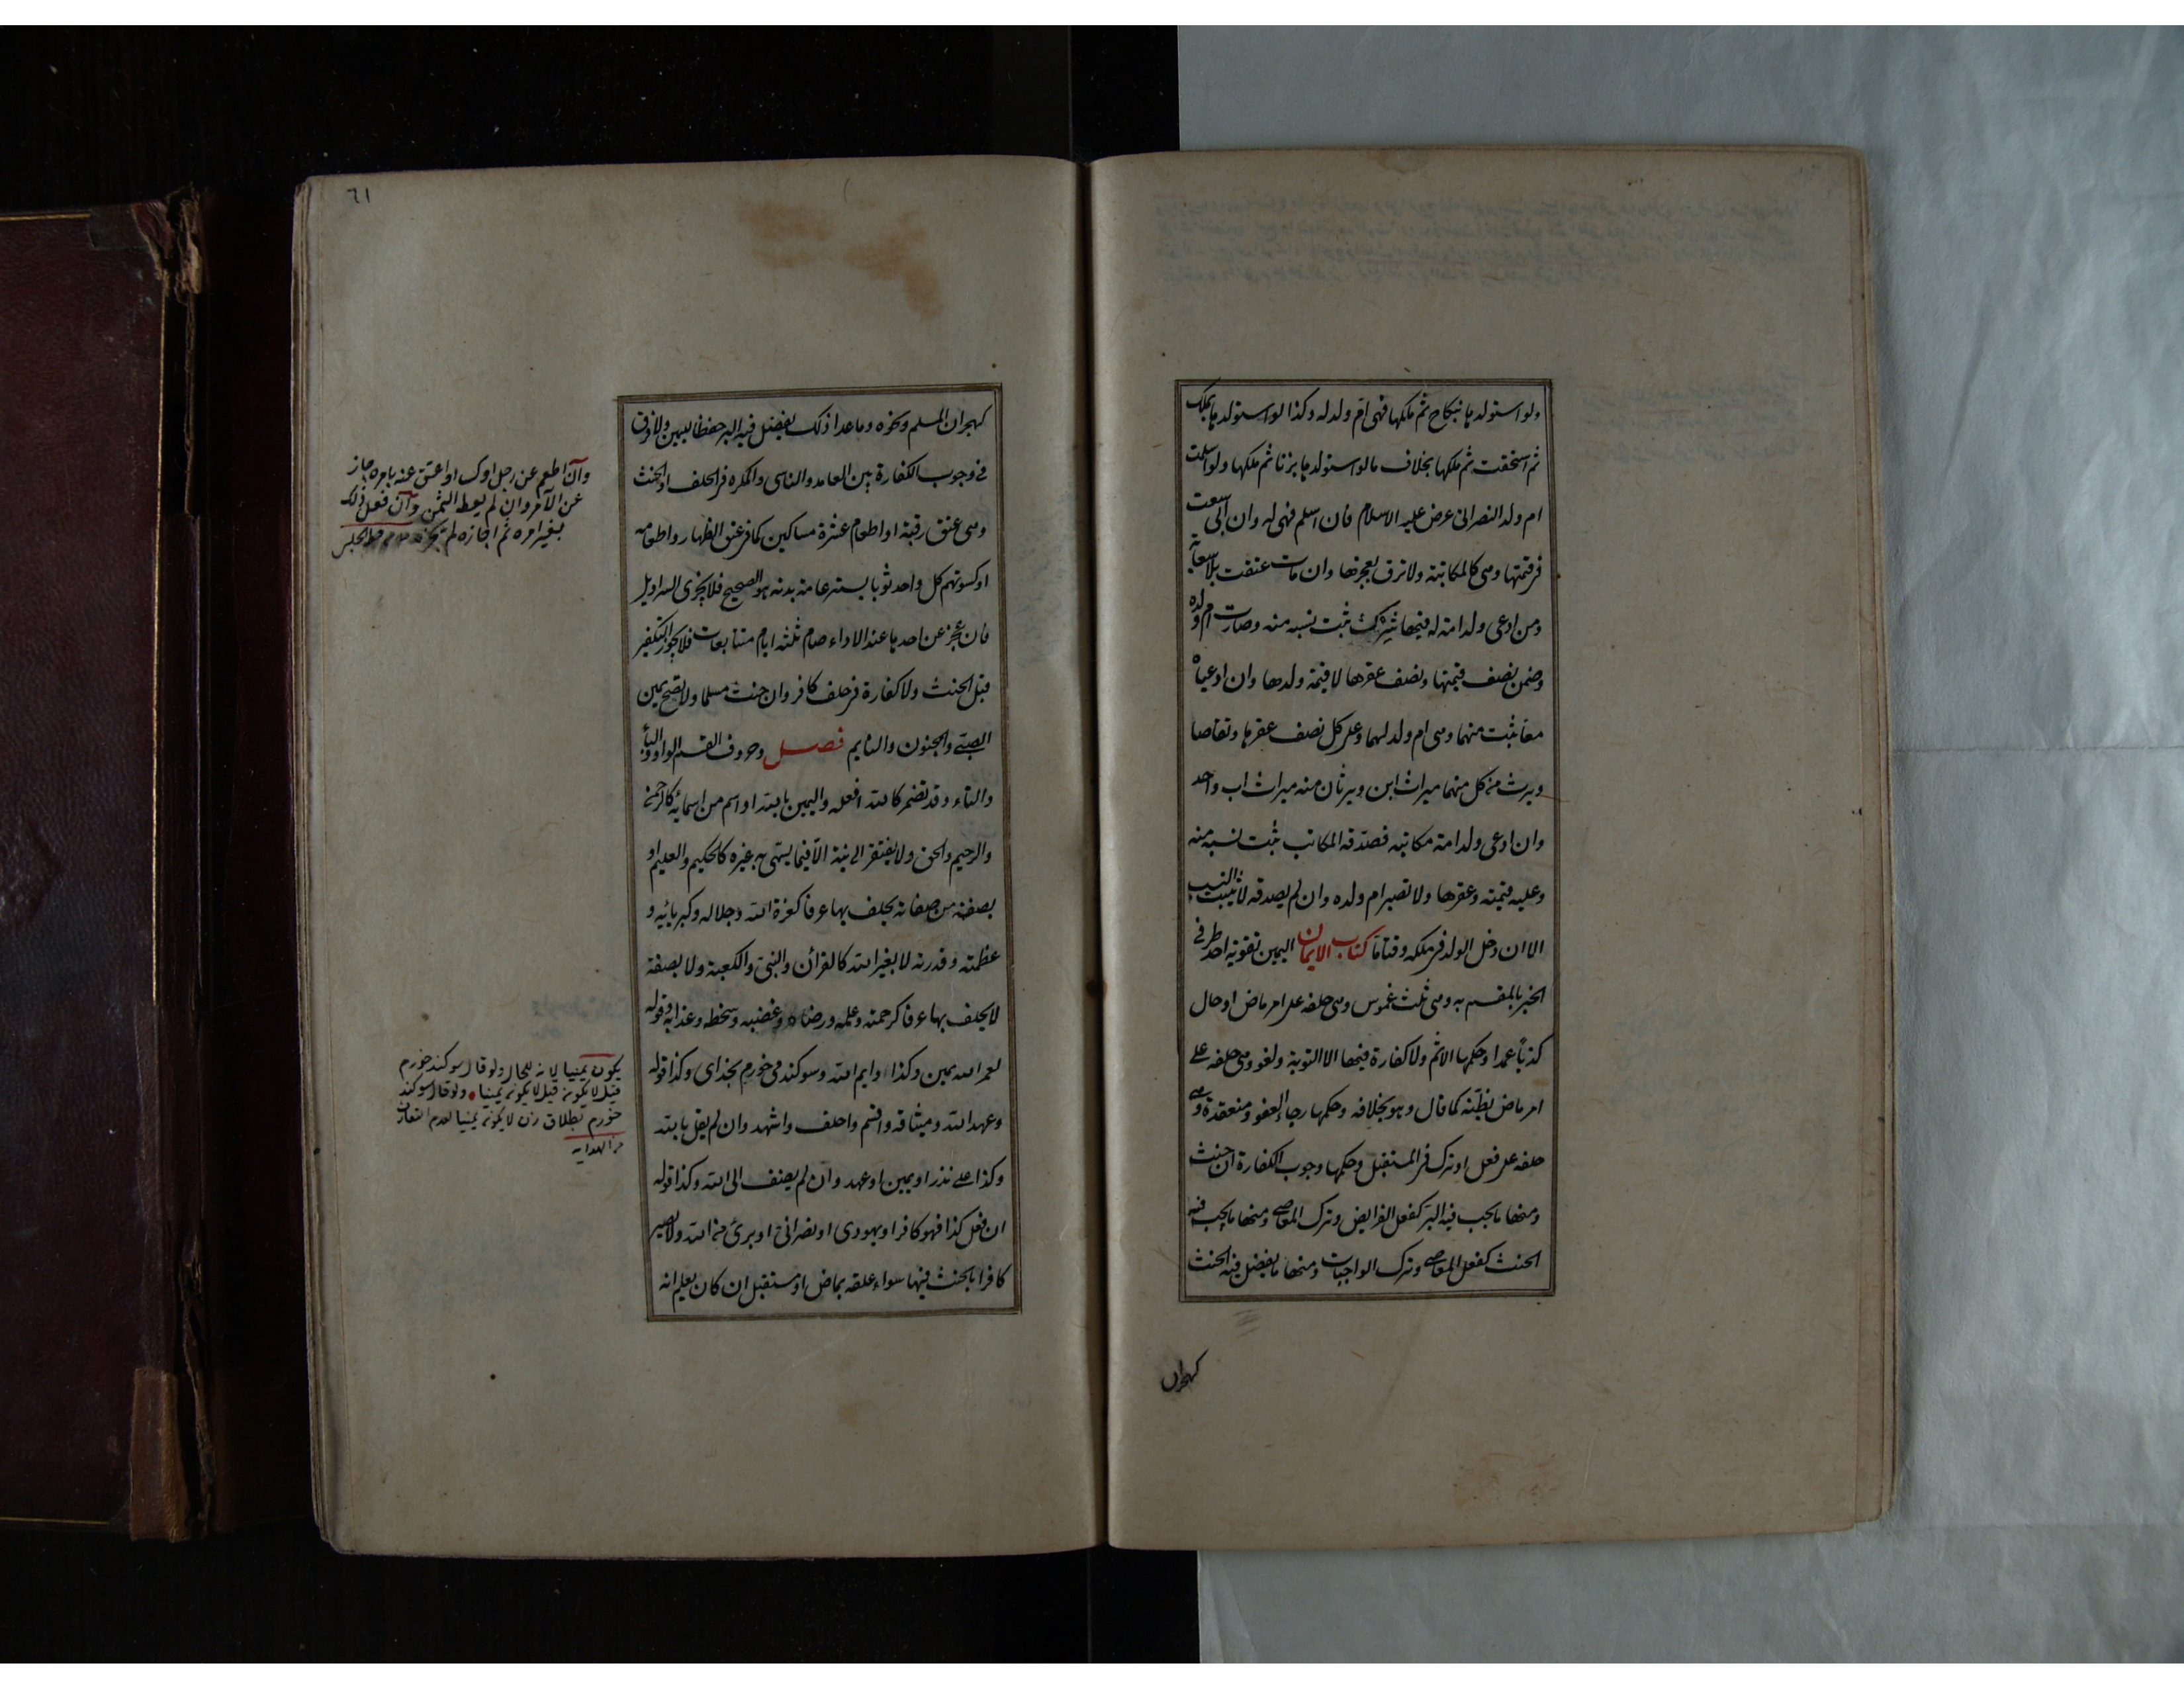 ولو استولدها بنكاح ثم ملكها فهى ام ولد له وكذا لو استولدها بملك
ثم استحقت ثم ملكها بخلاف ما لو استولدها بزنا ثم ملكها ولو اسلمت
ام ولد النصرانى عرض عليه الاسلام فان اسلم فهى له وان ابى سعت
فى قيمتها وهى كالمكاتبة ولا ترق بعجزها وان مات عتقت بلا سعاية
ومن ادعى ولد امة له فيها شرك ثبت نسبه منه وصارت ام ولده
وضمن نصف قيمتها ونصف عقرها لا قيمة ولدها وان ادعياه
معا ثبت منهما وهى ام ولد لهما وعلى كل نصف عقرها وتقاصا
ويرث من كل منهما ميراث ابن ويرثان منه ميراث اب واحد
وان ادعى ولد امة مكاتبه فصدقه المكاتب ثبت نسبه منه
وعليه قيمته وعقرها ولا تصير ام ولده وان لم يصدقه لا يثبت النسب
الا ان دخل الولد فى ملكه وقتا ما كتاب الايمان اليمين تقوية احد طرفى
الخبر بالمقسم به وهى ثلث غموس وهى حلفه على امر ماض او حال
كذبا عمدا وحكمها الاثم ولا كفارة فيها الا التوبة ولغو وهى حلفه على
امر ماض يظنه كما قال وهو بخلافه وحكمها رجاء العفو ومنعقدة وهى
حلفه على فعل او ترك فى المستقبل وحكمها وجوب الكفارة ان حنث
ومنها ما يجب فيه البر كفعل الفرايض وترك المعاصى ومنها ما يجب فيه
الحنث كفعل المعاصى وترك الواجبات ومنها ما يفضل فيه الحنث
كهجران
٦١
كهجران المسلم ونحوه وما عدا ذلك يفضل فيه البر حفظا لليمين ولا فرق
فى وجوب الكفارة بين العامد والناسى والمكره فى الحلف او الحنث
وهى عتق رقبة او اطعام عشرة مساكين كما فى عتق الظهار واطعامه
او كسوتهم كل واحد ثوبا يستر عامة بدنه هو الصحيح فلا يجزى السراويل
فان عجز عن احدها عند الاداء صام ثلثة ايام متتابعات فلا يجوز التكفير
قبل الحنث ولا كفارة فى حلف كافر وان حنث مسلما ولا تصح يمين
الصبى والمجنون والنايم فصل وحروف القسم الواو والباء
والتاء وقد تضمر كالله افعله واليمين بالله او اسم من اسمائه كالرحمن
والرحيم والحق ولا يفتقر الى نية الا فيما يسمى به غيره كالحكيم والعليم او
بصفة من صفاته يحلف بها عرفا كعزة الله وجلاله وكبريائه و
عظمته وقدرته لا بغير الله كالقرآن والنبى والكعبة ولا بصفة
لا يحلف بها عرفا كرحمته وعلمه ورضاه وغضبه وسخطه وعذابه وقوله
لعمر الله يمين وكذا وايم الله وسوكند مى خورم بخداى وكذا قوله
وعهد الله وميثاقه واقسم واحلف واشهد وان لم يقل بالله
وكذا على نذر او يمين او عهد وان لم يضف الى الله وكذا قوله
ان فعل كذا فهو كافر او يهودى او نصرانى او برئ من الله ولا يصير
كافرا بالحنث فيها سواء علقه بماض او مستقبل ان كان يعلم انه
وان اطعم عن رجل او كسا او اعتق عنه بامره جاز
عن الآمر وان لم يعط الثمن وان فعل ذلك
بغير امره ثم اجازه لم يجزه
يكون يمينا لانه للحال ولو قال سوكند خورم
قيل لا يكون يمينا ولو قال سوكند
خورم بطلاق زن لا يكون يمينا لعدم التعارف
من الهداية